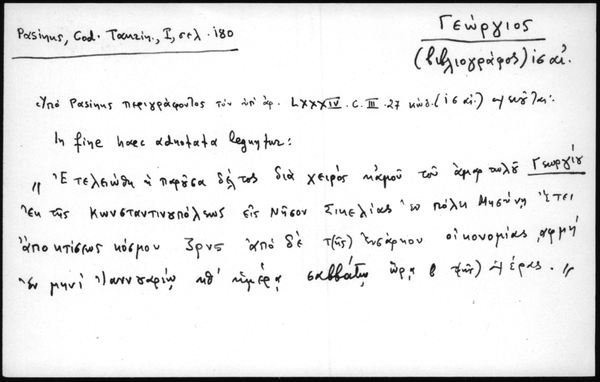 Pasinus, Cod. Taurin., I, σελ. 180
Γεώργιος
(βιβλιογράφος) ις αἰ.
Ὑπὸ Pasinus περιγράφοντος τὸν ὑπ' ἀρ. LXXXIV. C. III. 27 κώδ. (ις αἰ.)
In fine haec adnotata leguntur:
„ Ἐτελειώθη ἡ παροῦσα δέλτος διὰ χειρὸς κἀμοῦ τοῦ ἁμαρτωλοῦ Γεωργίου
ἐκ τῆς Κωνσταντινουπόλεως εἰς Νῆσον Σικελίας ἐν πόλη Μησήνη ἔτει
ἀπὸ κτίσεως κόσμου ἀπὸ δὲ τ(ῆς) ἐνσάρκου οἰκονομίας αφμή
ἐν μηνὶ Ἰαννουαρίῳ κθ' ἡμέρᾳ σαββάτῳ ὥρᾳ β τ(ῆς) ἡμέρας. „